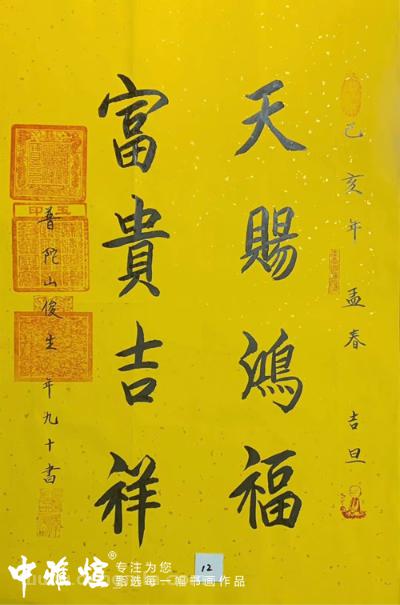 己亥年孟春 吉旦
天賜鴻福
富貴吉祥
普陀山俊生 年九十書
12
中雅煊®
专注为您
甄选每一幅书画作品